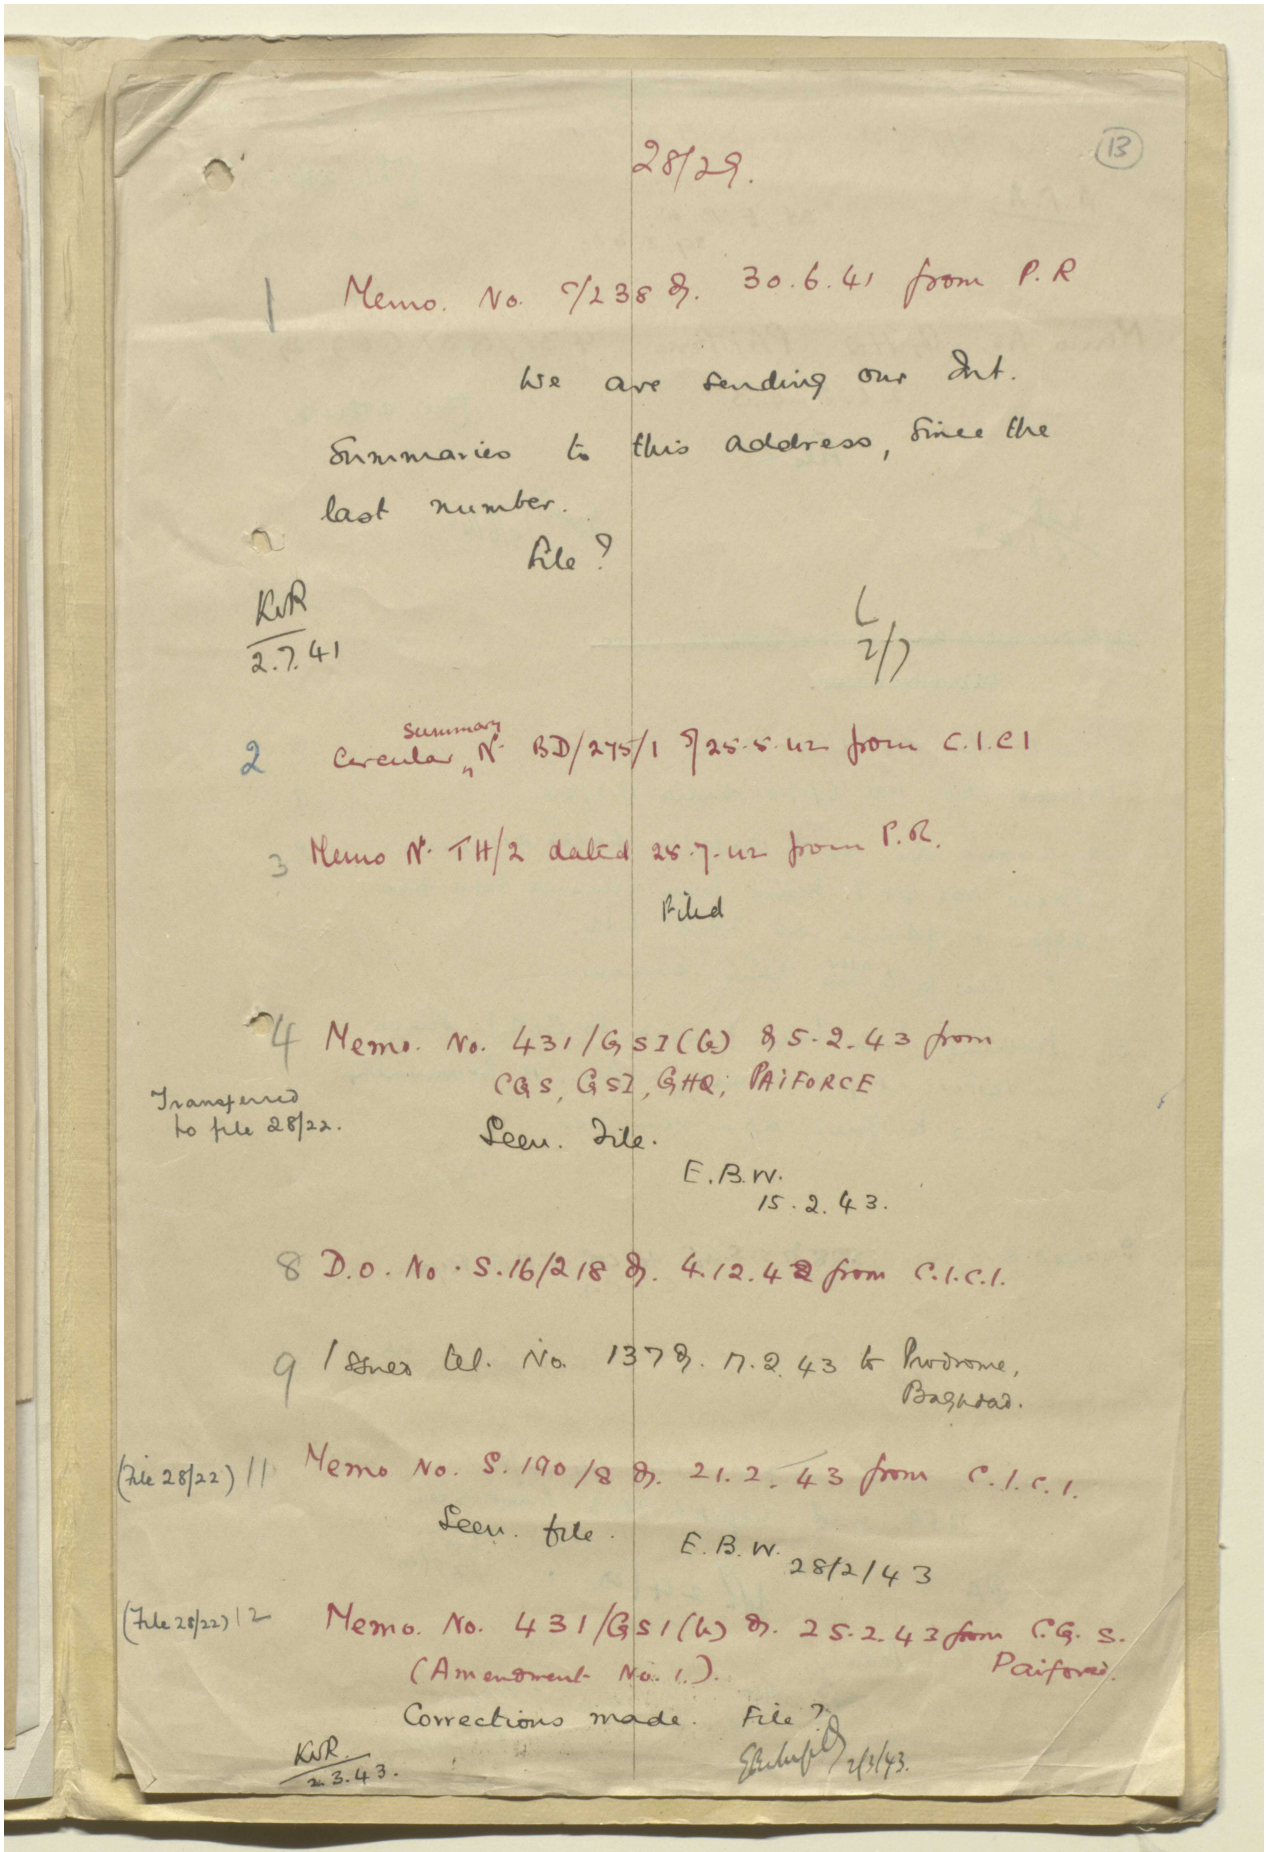 13
28/29.
1 Memo. No. C/238 d. 30.6.41 from P.R
We are sending our Int.
Summaries to this address, since the
last number.
File?
KVR
2.7.41
L
2/7
Summary
2 Circular ^ No. BD/275/1 d/25.5.42 from C.I.C.I
3 Memo No. TH/2 dated 28.7.42 from P.R.
Filed
4 Memo. No. 431/GSI(b) d/ 5.2.43 from
CGS, GSI, GHQ, PAIFORCE
Transferred
to file 28/22.
Seen. File.
E.B.W.
15.2.43.
8 D.O. No. S.16/218 d. 4.12.42 from C.I.C.I.
9 Issues tel. No. 137 d. 17.2.43 to Prodrome,
Baghdad.
(File 28/22) 11 Memo No. S.190/8 d. 21.2.43 from C.I.C.I.
Seen. file.
E.B.W.
28/2/43
(File 28/22) 12 Memo. No. 431/GSI(b) d. 25.2.43 from C.G.S.
(Amendment No. 1.). Paiforce.
Corrections made. File?
KVR.
2.3.43.
2/3/43.